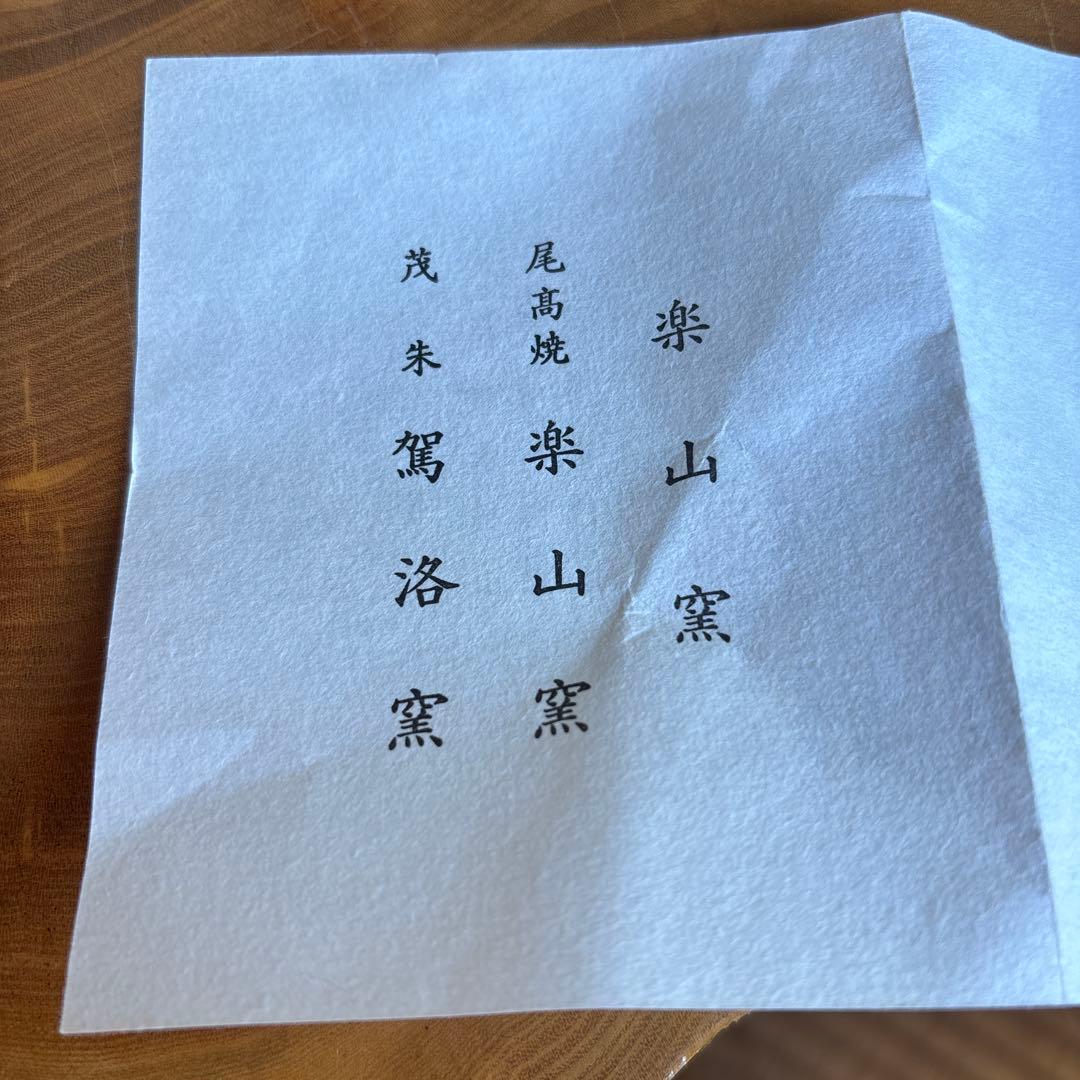 楽山窯
尾髙焼 楽山窯
茂朱 駕洛窯